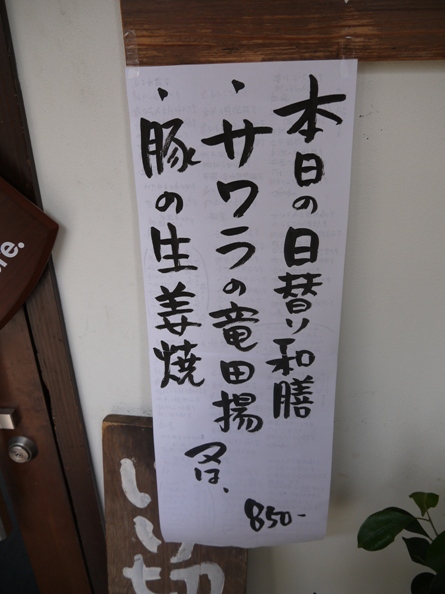 本日の日替り和膳
・サワラの竜田揚
又は、
・豚の生姜焼
850-
re.
いい切